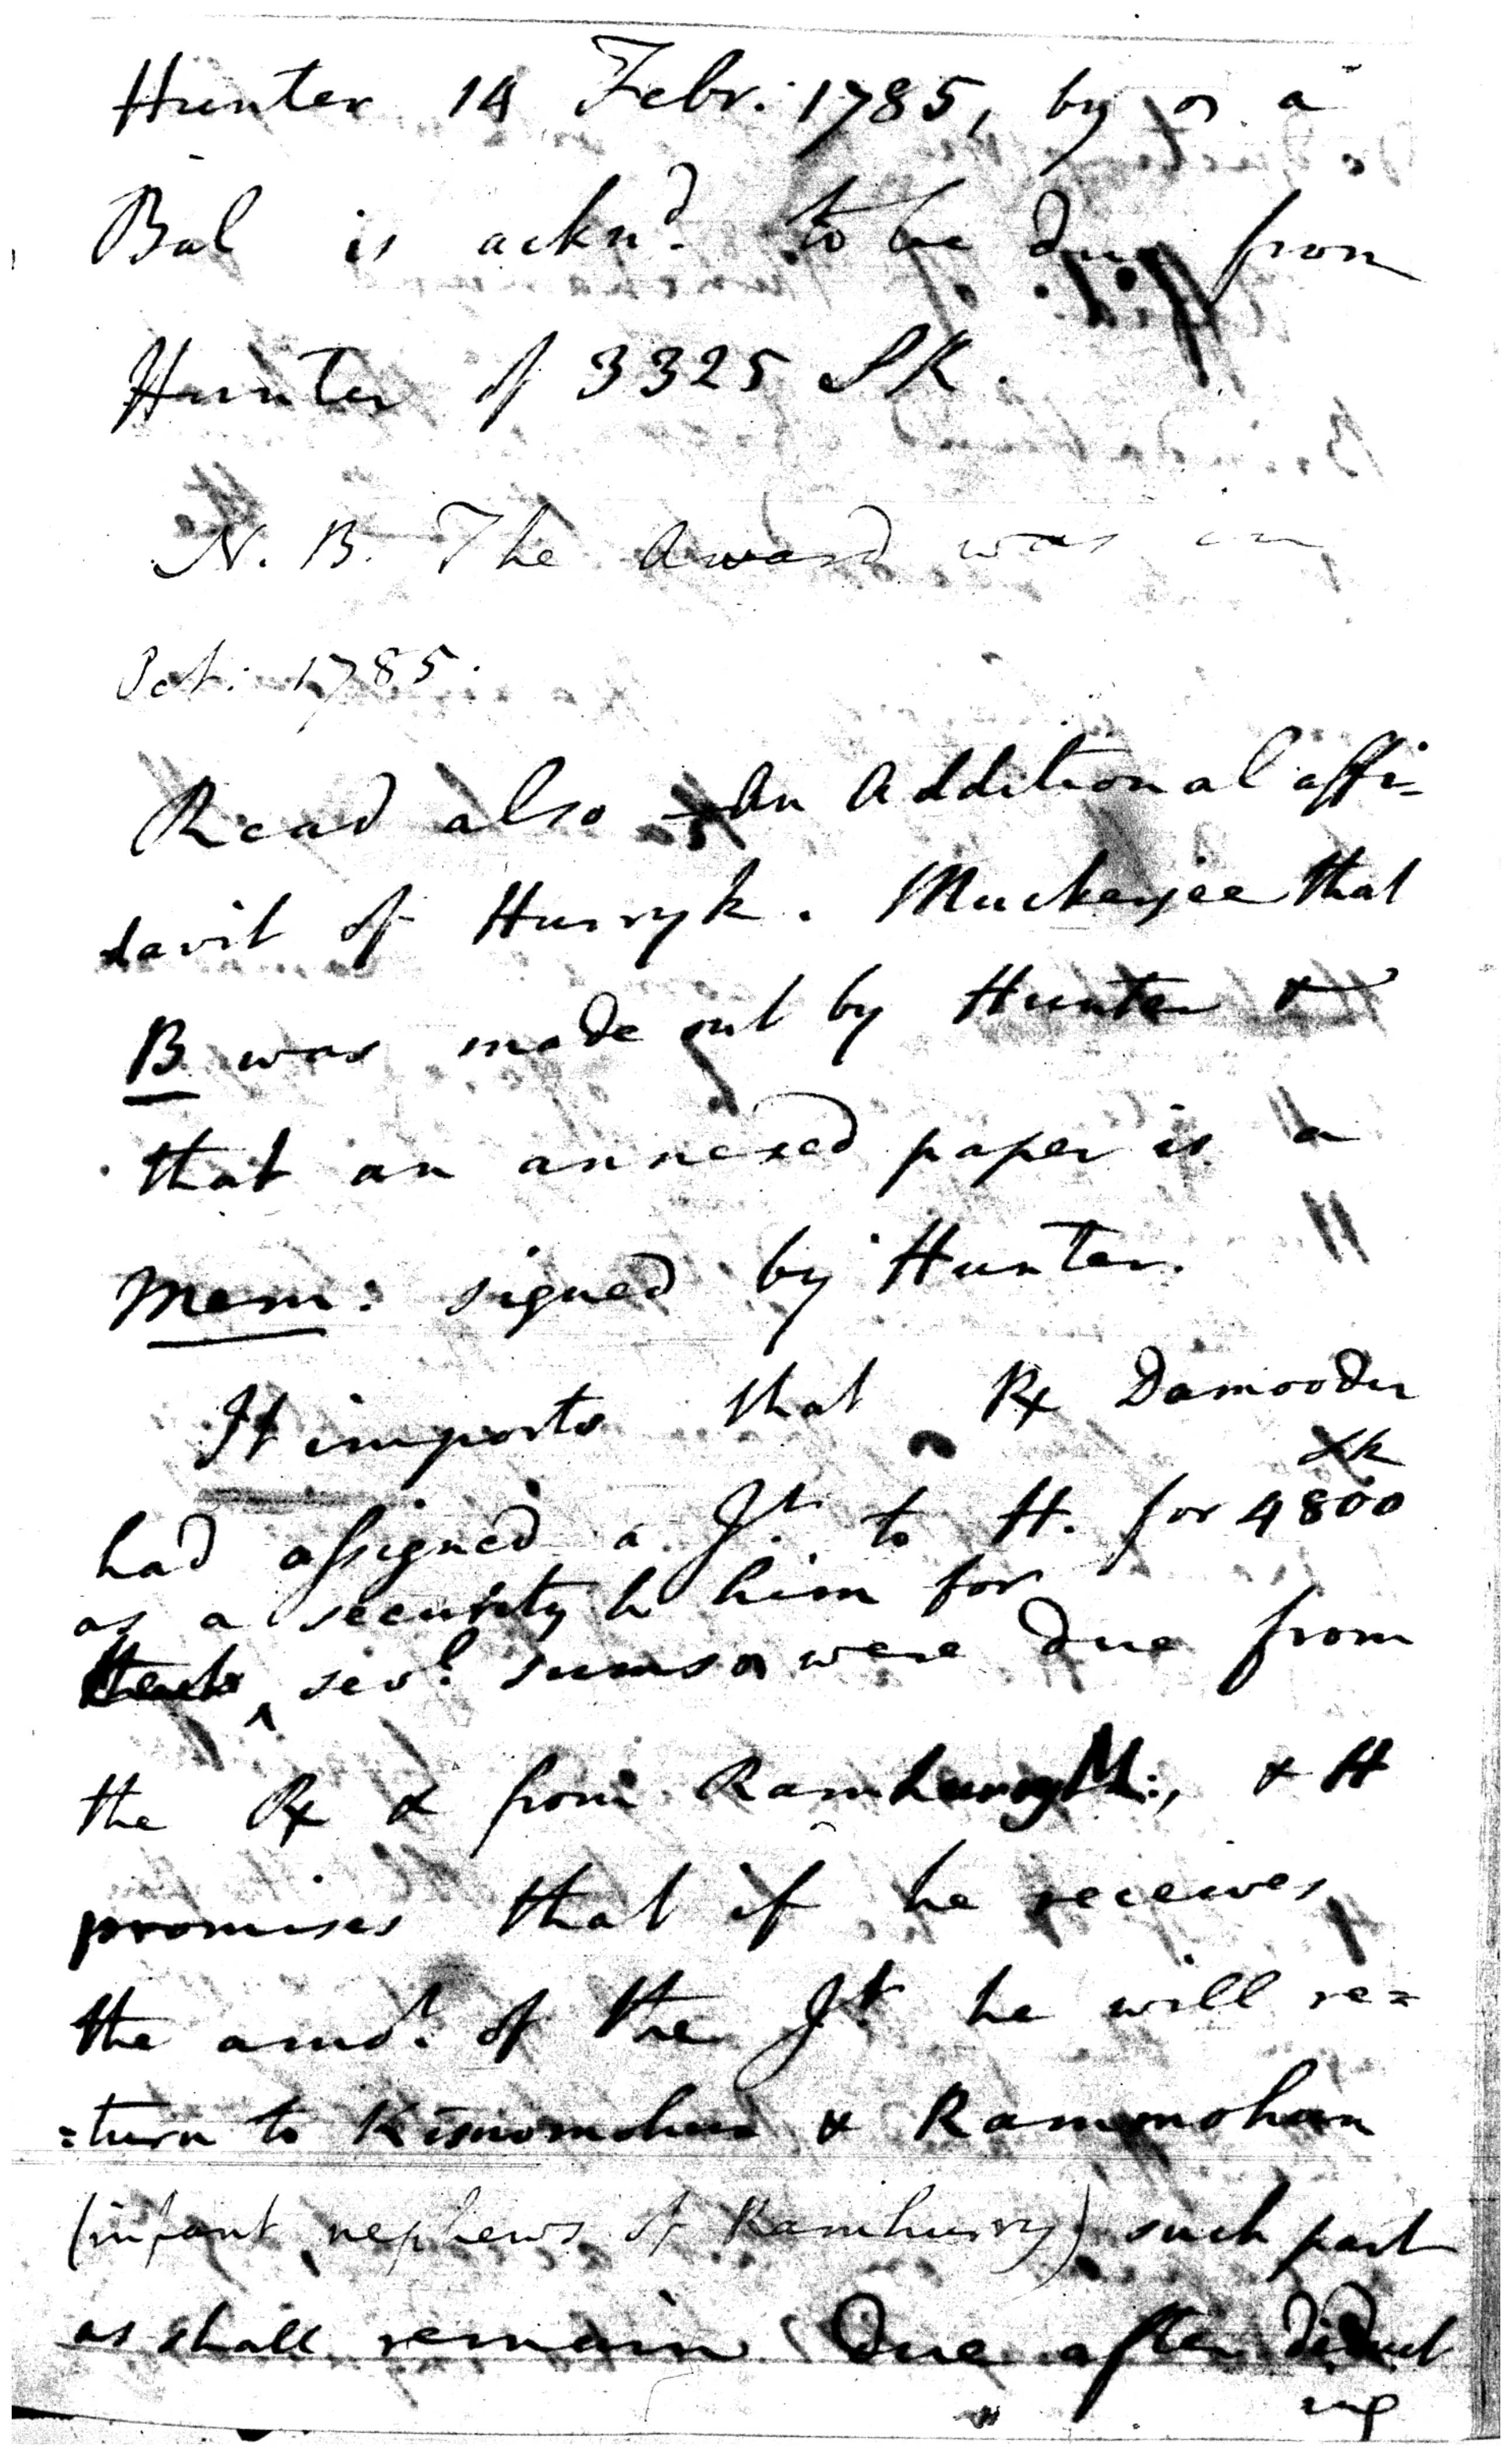 Hunter 14 Febr. 1785, by a
Bal is ackn.d to be due from
Hunter of 3325 SR.
N. B. The Award was in
Oct: 1785.
Read also An Additional affi-
davit of Hurryk. Muckerjee that
B was made out by Hunter &
that an annexed paper is a
Mem: signed by Hunter.
It imports that Damooder
had assigned a Jt. to H. for 4800
as a security to him for
sevl. sums were due from
the & from Ramhurry M:, & H
promises that if he receives
the amo.t of the Jt he will re=
=turn to Kisnomohun & Rammohun
(infant nephews of Ramhurry) such part
as shall remain due after deduct
ing